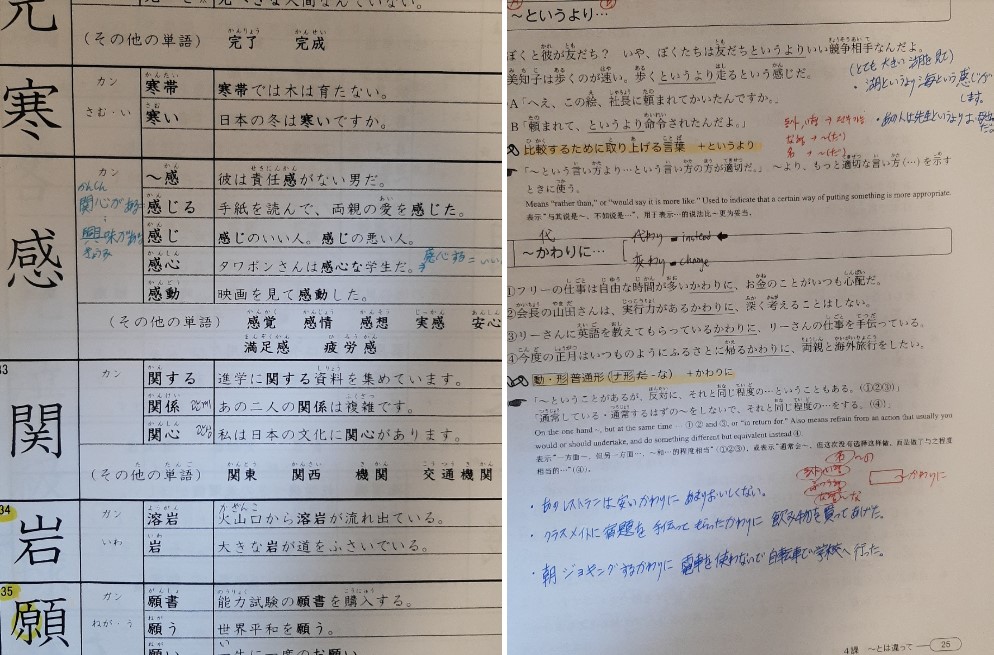 元
(その他の単語) 完了 完成
寒
カン
さむ・い
寒帯 寒帯では木は育たない。
寒い 日本の冬は寒いですか。
感
カン
～感 彼は責任感がない男だ。
感じる 手紙を読んで、両親の愛を感じた。
感じ 感じのいい人。感じの悪い人。
感心 タワポンさんは感心な学生だ。
感動 映画を見て感動した。
かんしん
関心がある
興味がある
きょうみ
(その他の単語) 感覚 感情 感想 実感 安心
満足感 疲労感
関
カン
関する 進学に関する資料を集めています。
関係 あの二人の関係は複雑です。
関心 私は日本の文化に関心があります。
(その他の単語) 関東 関西 機関 交通機関
34
岩
ガン
いわ
溶岩 火山口から溶岩が流れ出ている。
岩 大きな岩が道をふさいでいる。
35
願
ガン
ねが・う
願書 能力試験の願書を購入する。
願う 世界平和を願う。
願い 一生に一度のお願い
～というより…
ぼくと彼が友だち? いや、ぼくたちは友だちというよりいい競争相手なんだよ。
美知子は歩くのが速い。歩くというより走るという感じだ。
A「へえ、この絵、社長に頼まれてかいたんですか。」
B「頼まれて、というより命令されたんだよ。」
(とても大きい湖を見て)
・湖というより海という感じが
します。
比較するために取り上げる言葉 +というより
「～という言い方より…という言い方の方が適切だ」 ～より、もっと適切な言い方(…)を示す
ときに使う。
Means "rather than," or "would say it is more like." Used to indicate that a certain way of putting something is more appropriate.
表示"与其说是～、不如说是…"，用于表示…的说法比～更为妥当。
～かわりに…
代
代わり instead
変わり change
①フリーの仕事は自由な時間が多いかわりに、お金のことがいつも心配だ。
②会長の山田さんは、実行力があるかわりに、深く考えることはしない。
③リーさんに英語を教えてもらっているかわりに、リーさんの仕事を手伝っている。
④今度の正月はいつものようにふるさとに帰るかわりに、両親と海外旅行をしたい。
動・形 普通形(ナ形だ -な) +かわりに
「～ということがあるが、反対に、それと同じ程度の…ということもある。(①②③)」
「通常している・通常するはずの～をしないで、それと同じ程度の…をする。(④)」
On the one hand ~, but at the same time … ① ② and ③, or "in return for." Also means refrain from an action that usually you
would or should undertake, and do something different but equivalent instead ④.
・あのレストランは安いかわりにあまりおいしくない。
・クラスメイトに宿題を手伝ってもらったかわりに飲み物を買ってあげた。
・朝ジョギングするかわりに電車を使わないで自転車で学校へ行った。
かわりに
4課 ～とは違って
25